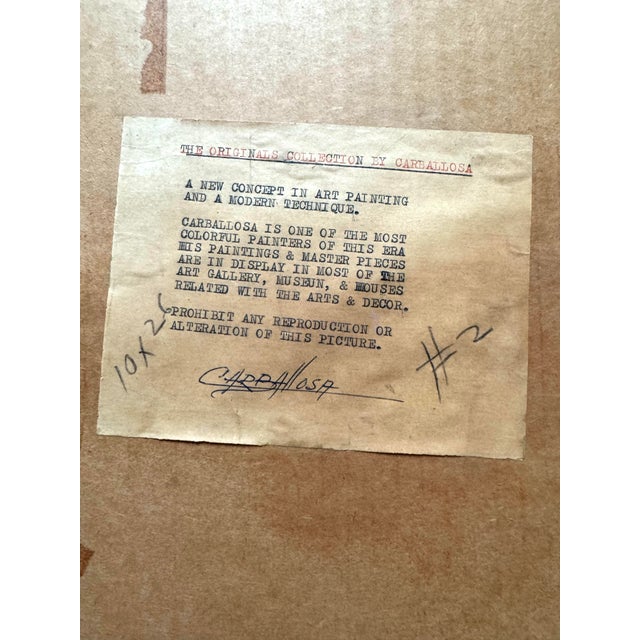 THE ORIGINALS COLLECTION BY CARBALLOSA
A NEW CONCEPT IN ART PAINTING
AND A MODERN TECHNIQUE.
CARBALLOSA IS ONE OF THE MOST
COLORFUL PAINTERS OF THIS ERA
HIS PAINTINGS & MASTER PIECES
ARE IN DISPLAY IN MOST OF THE
ART GALLERY, MUSEUN, & HOUSES
RELATED WITH THE ARTS & DECOR.
PROHIBIT ANY REPRODUCTION OR
ALTERATION OF THIS PICTURE.
CARBALLOSA
10X26
#2